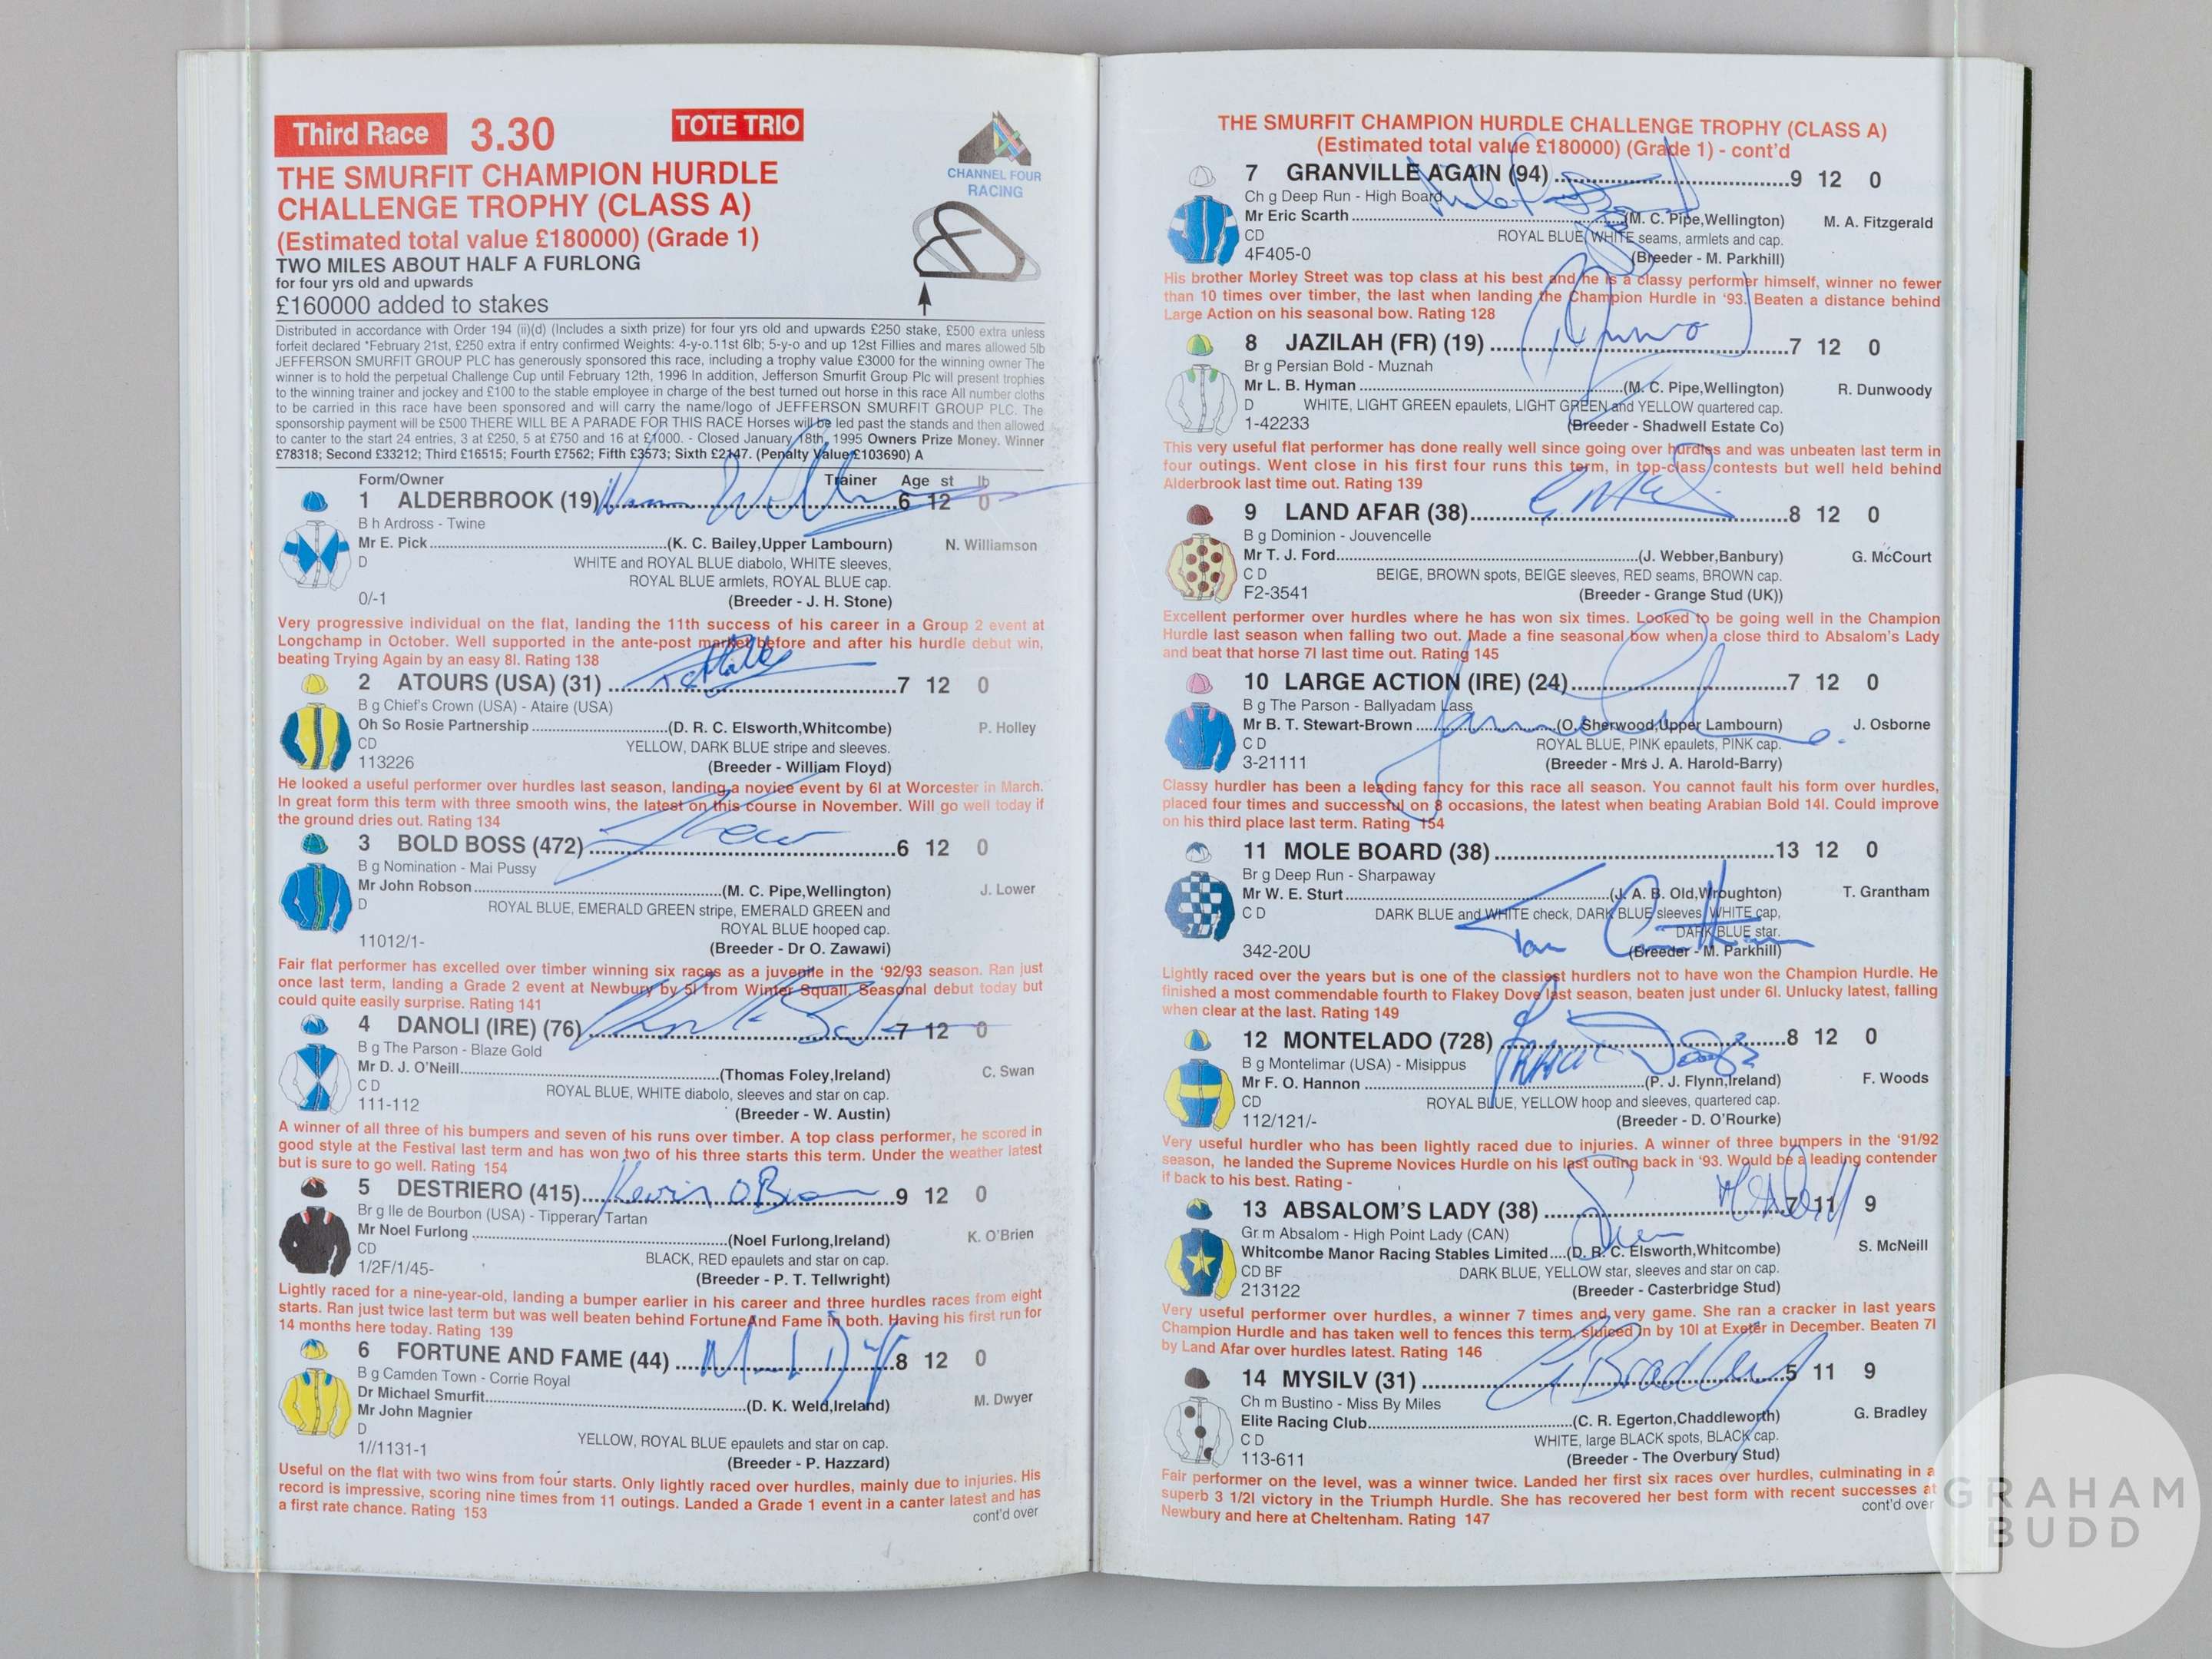 Third Race 3.30 TOTE TRIO
THE SMURFIT CHAMPION HURDLE
CHALLENGE TROPHY (CLASS A)
(Estimated total value £180000) (Grade 1)
TWO MILES ABOUT HALF A FURLONG
for four yrs old and upwards
£160000 added to stakes
CHANNEL FOUR
RACING
Distributed in accordance with Order 194 (ii)(d) (Includes a sixth prize) for four yrs old and upwards £250 stake, £500 extra unless
forfeit declared *February 21st, £250 extra if entry confirmed Weights: 4-y-o.11st 6lb; 5-y-o and up 12st Fillies and mares allowed 5lb
JEFFERSON SMURFIT GROUP PLC has generously sponsored this race, including a trophy value £3000 for the winning owner The
winner is to hold the perpetual Challenge Cup until February 12th, 1996 In addition, Jefferson Smurfit Group Plc will present trophies
to the winning trainer and jockey and £100 to the stable employee in charge of the best turned out horse in this race All number cloths
to be carried in this race have been sponsored and will carry the name/logo of JEFFERSON SMURFIT GROUP PLC. The
sponsorship payment will be £500 THERE WILL BE A PARADE FOR THIS RACE Horses will be led past the stands and then allowed
to canter to the start 24 entries, 3 at £250, 5 at £750 and 16 at £1000. - Closed January 18th, 1995 Owners Prize Money. Winner
£78318; Second £33212; Third £16515; Fourth £7562; Fifth £3573; Sixth £2147. (Penalty Value £103690) A
Form/Owner Trainer Age st lb
1 ALDERBROOK (19) 6 12 0
B h Ardross - Twine
Mr E. Pick (K. C. Bailey,Upper Lambourn) N. Williamson
D WHITE and ROYAL BLUE diabolo, WHITE sleeves,
ROYAL BLUE armlets, ROYAL BLUE cap.
0/-1 (Breeder - J. H. Stone)
Very progressive individual on the flat, landing the 11th success of his career in a Group 2 event at
Longchamp in October. Well supported in the ante-post market before and after his hurdle debut win,
beating Trying Again by an easy 8l. Rating 138
2 ATOURS (USA) (31) 7 12 0
B g Chief's Crown (USA) - Ataire (USA)
Oh So Rosie Partnership (D. R. C. Elsworth,Whitcombe) P. Holley
CD YELLOW, DARK BLUE stripe and sleeves.
113226 (Breeder - William Floyd)
He looked a useful performer over hurdles last season, landing a novice event by 6l at Worcester in March.
In great form this term with three smooth wins, the latest on this course in November. Will go well today if
the ground dries out. Rating 134
3 BOLD BOSS (472) 6 12 0
B g Nomination - Mai Pussy
Mr John Robson (M. C. Pipe,Wellington) J. Lower
D ROYAL BLUE, EMERALD GREEN stripe, EMERALD GREEN and
ROYAL BLUE hooped cap.
11012/1- (Breeder - Dr O. Zawawi)
Fair flat performer has excelled over timber winning six races as a juvenile in the '92/93 season. Ran just
once last term, landing a Grade 2 event at Newbury by 5l from Winter Squall. Seasonal debut today but
could quite easily surprise. Rating 141
4 DANOLI (IRE) (76) 7 12 0
B g The Parson - Blaze Gold
Mr D. J. O'Neill (Thomas Foley,Ireland) C. Swan
C D ROYAL BLUE, WHITE diabolo, sleeves and star on cap.
111-112 (Breeder - W. Austin)
A winner of all three of his bumpers and seven of his runs over timber. A top class performer, he scored in
good style at the Festival last term and has won two of his three starts this term. Under the weather latest
but is sure to go well. Rating 154
5 DESTRIERO (415) Kevin O'Brien 9 12 0
Br g Ile de Bourbon (USA) - Tipperary Tartan
Mr Noel Furlong (Noel Furlong,Ireland) K. O'Brien
CD BLACK, RED epaulets and star on cap.
1/2F/1/45- (Breeder - P. T. Tellwright)
Lightly raced for a nine-year-old, landing a bumper earlier in his career and three hurdles races from eight
starts. Ran just twice last term but was well beaten behind Fortune And Fame in both. Having his first run for
14 months here today. Rating 139
6 FORTUNE AND FAME (44) 8 12 0
B g Camden Town - Corrie Royal
Dr Michael Smurfit
Mr John Magnier (D. K. Weld,Ireland) M. Dwyer
D YELLOW, ROYAL BLUE epaulets and star on cap.
1//1131-1 (Breeder - P. Hazzard)
Useful on the flat with two wins from four starts. Only lightly raced over hurdles, mainly due to injuries. His
record is impressive, scoring nine times from 11 outings. Landed a Grade 1 event in a canter latest and has
a first rate chance. Rating 153
cont'd over
THE SMURFIT CHAMPION HURDLE CHALLENGE TROPHY (CLASS A)
(Estimated total value £180000) (Grade 1) - cont'd
7 GRANVILLE AGAIN (94) 9 12 0
Ch g Deep Run - High Board
Mr Eric Scarth (M. C. Pipe,Wellington) M. A. Fitzgerald
CD ROYAL BLUE, WHITE seams, armlets and cap.
4F405-0 (Breeder - M. Parkhill)
His brother Morley Street was top class at his best and he is a classy performer himself, winner no fewer
than 10 times over timber, the last when landing the Champion Hurdle in '93. Beaten a distance behind
Large Action on his seasonal bow. Rating 128
8 JAZILAH (FR) (19) 7 12 0
Br g Persian Bold - Muznah
Mr L. B. Hyman (M. C. Pipe,Wellington) R. Dunwoody
D WHITE, LIGHT GREEN epaulets, LIGHT GREEN and YELLOW quartered cap.
1-42233 (Breeder - Shadwell Estate Co)
This very useful flat performer has done really well since going over hurdles and was unbeaten last term in
four outings. Went close in his first four runs this term, in top-class contests but well held behind
Alderbrook last time out. Rating 139
9 LAND AFAR (38) 8 12 0
B g Dominion - Jouvencelle
Mr T. J. Ford (J. Webber,Banbury) G. McCourt
C D BEIGE, BROWN spots, BEIGE sleeves, RED seams, BROWN cap.
F2-3541 (Breeder - Grange Stud (UK))
Excellent performer over hurdles where he has won six times. Looked to be going well in the Champion
Hurdle last season when falling two out. Made a fine seasonal bow when a close third to Absalom's Lady
and beat that horse 7l last time out. Rating 145
10 LARGE ACTION (IRE) (24) 7 12 0
B g The Parson - Ballyadam Lass
Mr B. T. Stewart-Brown (O. Sherwood,Upper Lambourn) J. Osborne
C D ROYAL BLUE, PINK epaulets, PINK cap.
3-21111 (Breeder - Mrs J. A. Harold-Barry)
Classy hurdler has been a leading fancy for this race all season. You cannot fault his form over hurdles,
placed four times and successful on 8 occasions, the latest when beating Arabian Bold 14l. Could improve
on his third place last term. Rating 154
11 MOLE BOARD (38) 13 12 0
Br g Deep Run - Sharpaway
Mr W. E. Sturt (J. A. B. Old,Wroughton) T. Grantham
C D DARK BLUE and WHITE check, DARK BLUE sleeves, WHITE cap,
DARK BLUE star.
342-20U (Breeder - M. Parkhill)
Lightly raced over the years but is one of the classiest hurdlers not to have won the Champion Hurdle. He
finished a most commendable fourth to Flakey Dove last season, beaten just under 6l. Unlucky latest, falling
when clear at the last. Rating 149
12 MONTELADO (728) 8 12 0
B g Montelimar (USA) - Misippus
Mr F. O. Hannon (P. J. Flynn,Ireland) F. Woods
CD ROYAL BLUE, YELLOW hoop and sleeves, quartered cap.
112/121/- (Breeder - D. O'Rourke)
Very useful hurdler who has been lightly raced due to injuries. A winner of three bumpers in the '91/92
season, he landed the Supreme Novices Hurdle on his last outing back in '93. Would be a leading contender
if back to his best. Rating -
13 ABSALOM'S LADY (38) 7 11 9
Gr m Absalom - High Point Lady (CAN)
Whitcombe Manor Racing Stables Limited (D. R. C. Elsworth,Whitcombe) S. McNeill
CD BF DARK BLUE, YELLOW star, sleeves and star on cap.
213122 (Breeder - Casterbridge Stud)
Very useful performer over hurdles, a winner 7 times and very game. She ran a cracker in last years
Champion Hurdle and has taken well to fences this term, sluiced in by 10l at Exeter in December. Beaten 7l
by Land Afar over hurdles latest. Rating 146
14 MYSILV (31) G Bradley 5 11 9
Ch m Bustino - Miss By Miles
Elite Racing Club (C. R. Egerton,Chaddleworth) G. Bradley
C D WHITE, large BLACK spots, BLACK cap.
113-611 (Breeder - The Overbury Stud)
Fair performer on the level, was a winner twice. Landed her first six races over hurdles, culminating in a
superb 3 1/2l victory in the Triumph Hurdle. She has recovered her best form with recent successes at
Newbury and here at Cheltenham. Rating 147
cont'd over
GRAHAM
BUDD